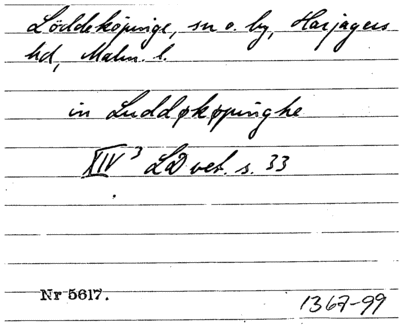 Löddeköpinge, sn o. by, Harjagers
hd, Malm. l.
in Luddøkøpinghe
XIV³ LD vet. s. 33
Nr 5617.
1367-99